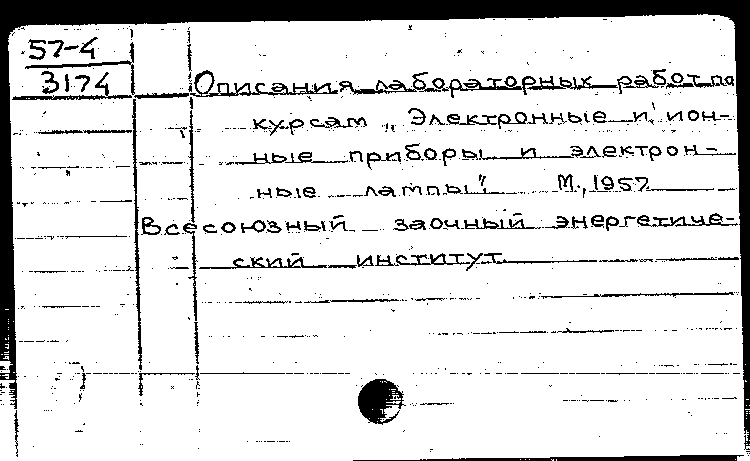 57-4
3174
Описания лабораторных работ по
курсам „Электронные и ион-
ные приборы и электрон-
ные лампы". М., 1957
Всесоюзный заочный энергетиче-
ский институт